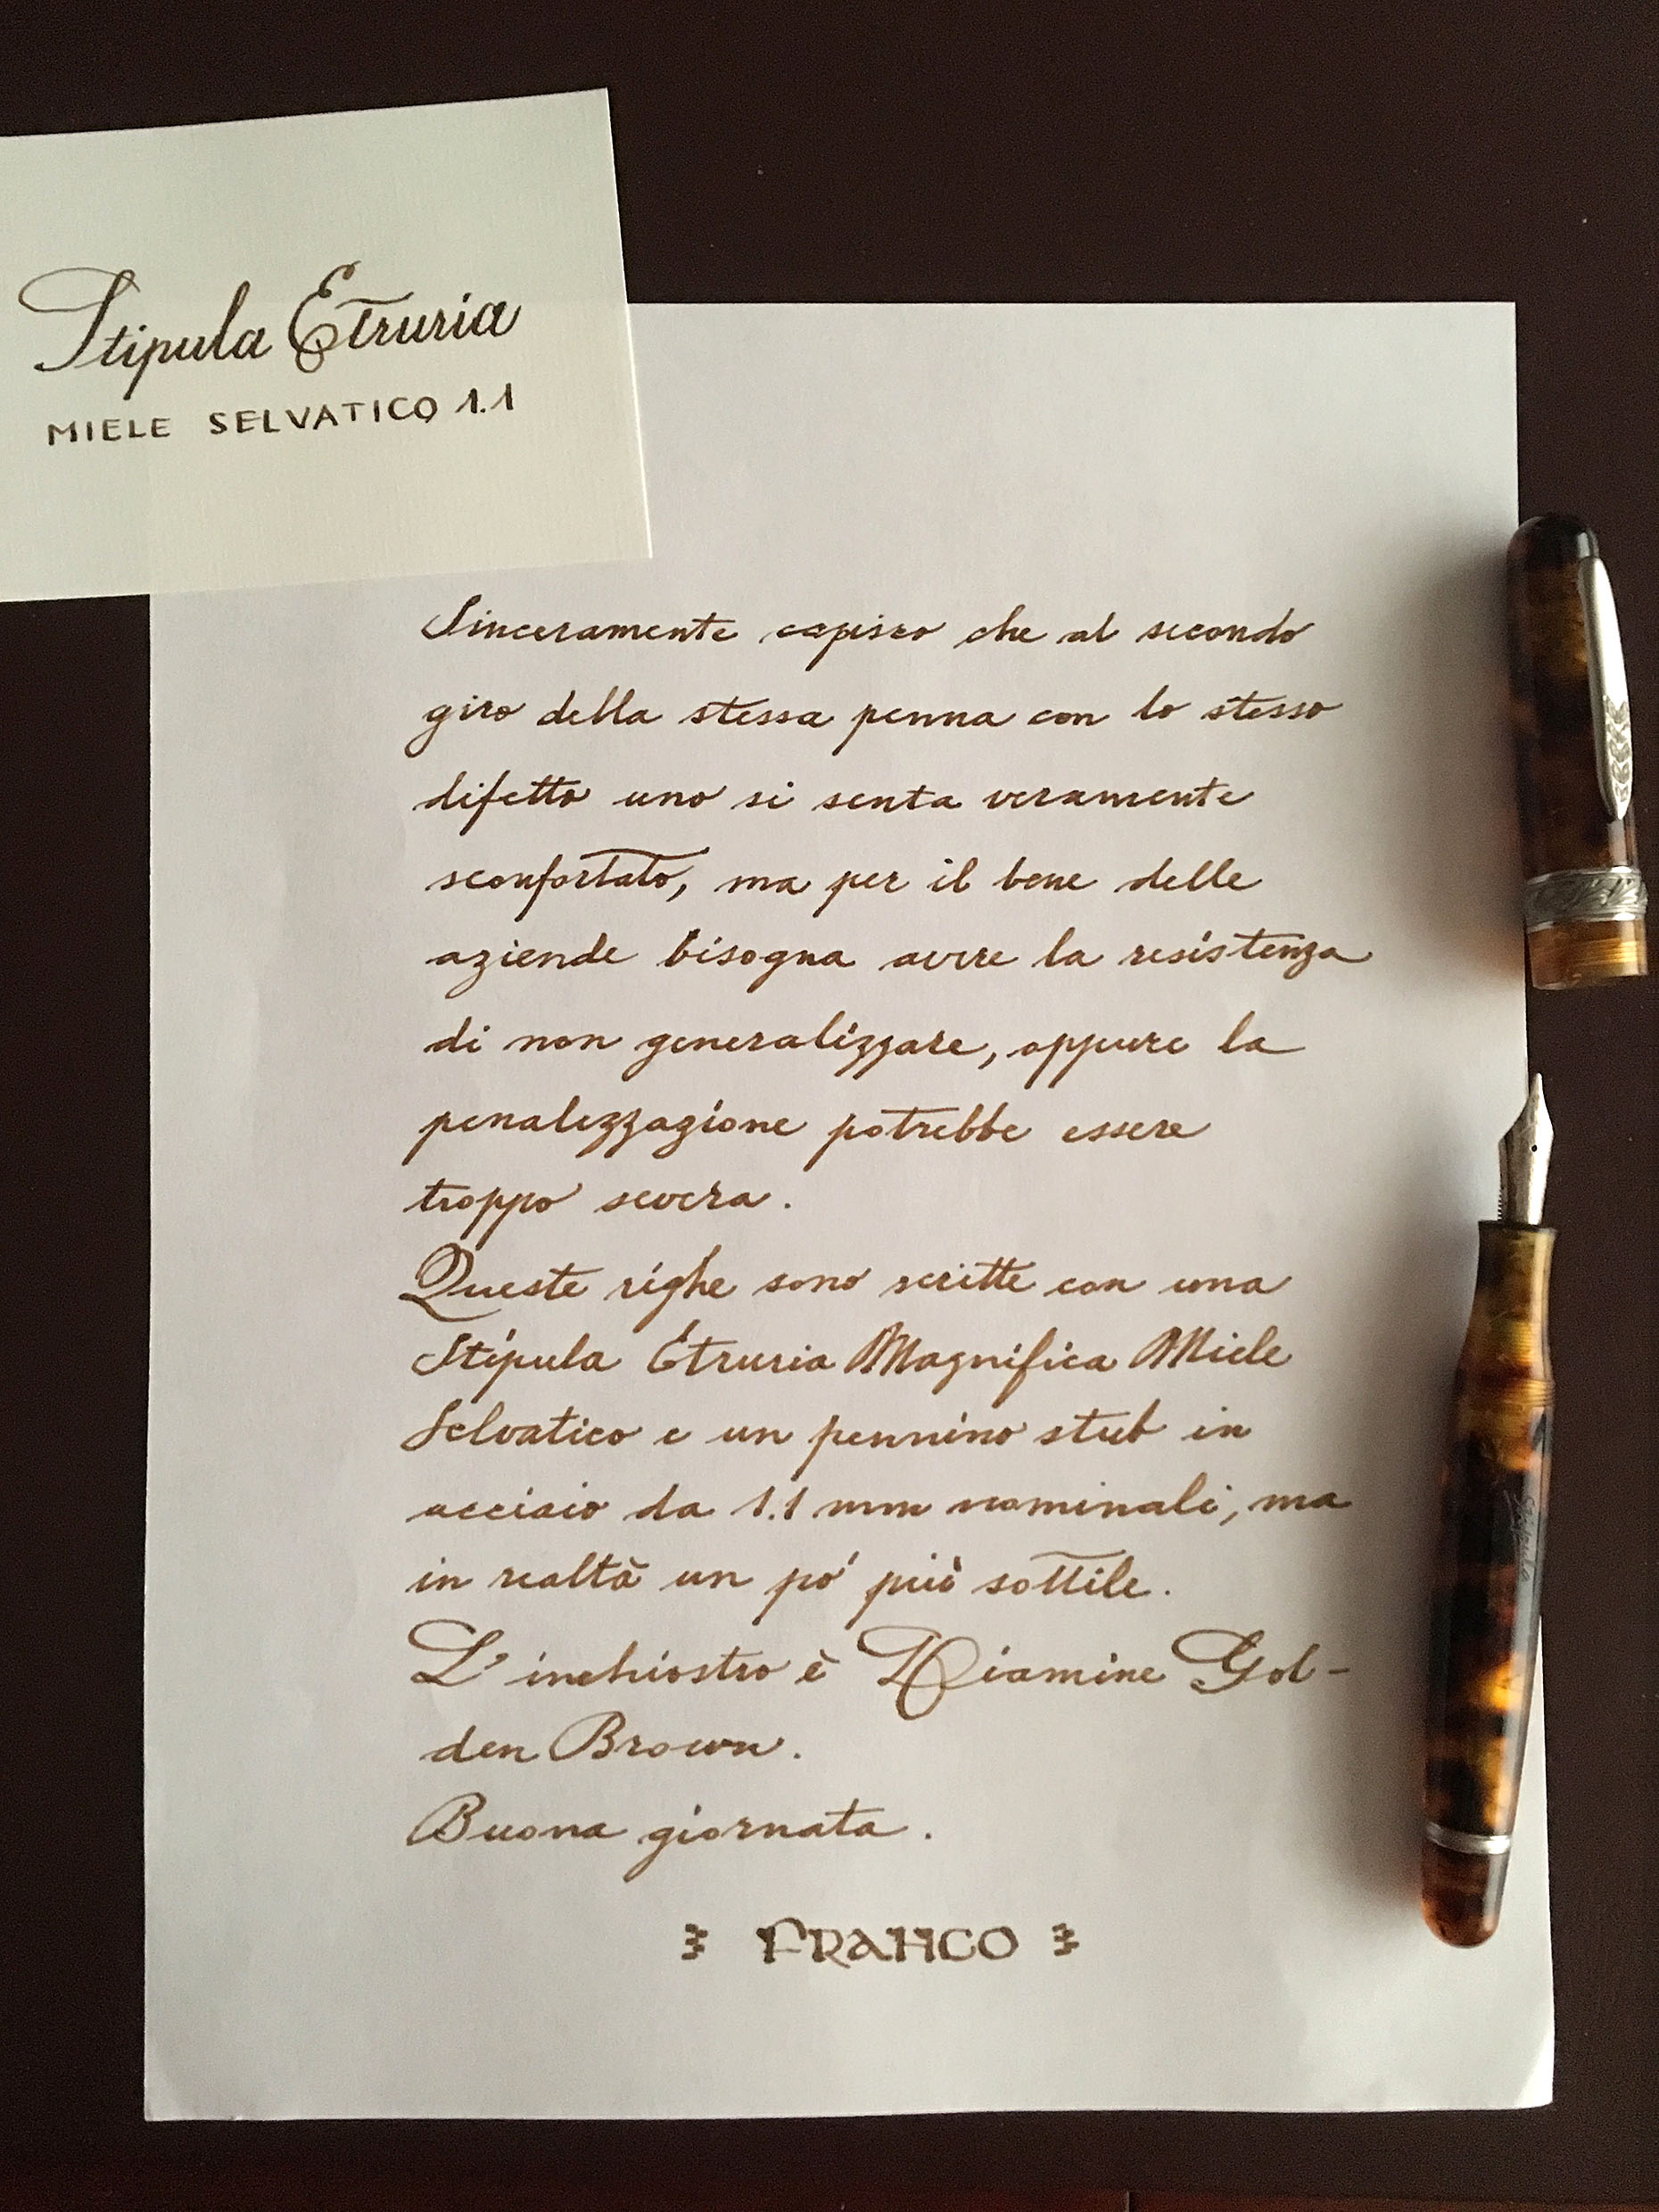 Stipula Etruria
MIELE SELVATICO 1.1
Sinceramente capisco che al secondo
giro della stessa penna con lo stesso
difetto uno si senta veramente
sconfortato, ma per il bene delle
aziende bisogna avere la resistenza
di non generalizzare, oppure la
penalizzazione potrebbe essere
troppo severa.
Queste righe sono scritte con una
Stipula Etruria Magnifica Miele
Selvatico e un pennino stub in
acciaio da 1.1 mm nominali, ma
in realtà un pó più sottile.
L'inchiostro è Diamine Gol-
den Brown.
Buona giornata.
FRANCO
Stipula